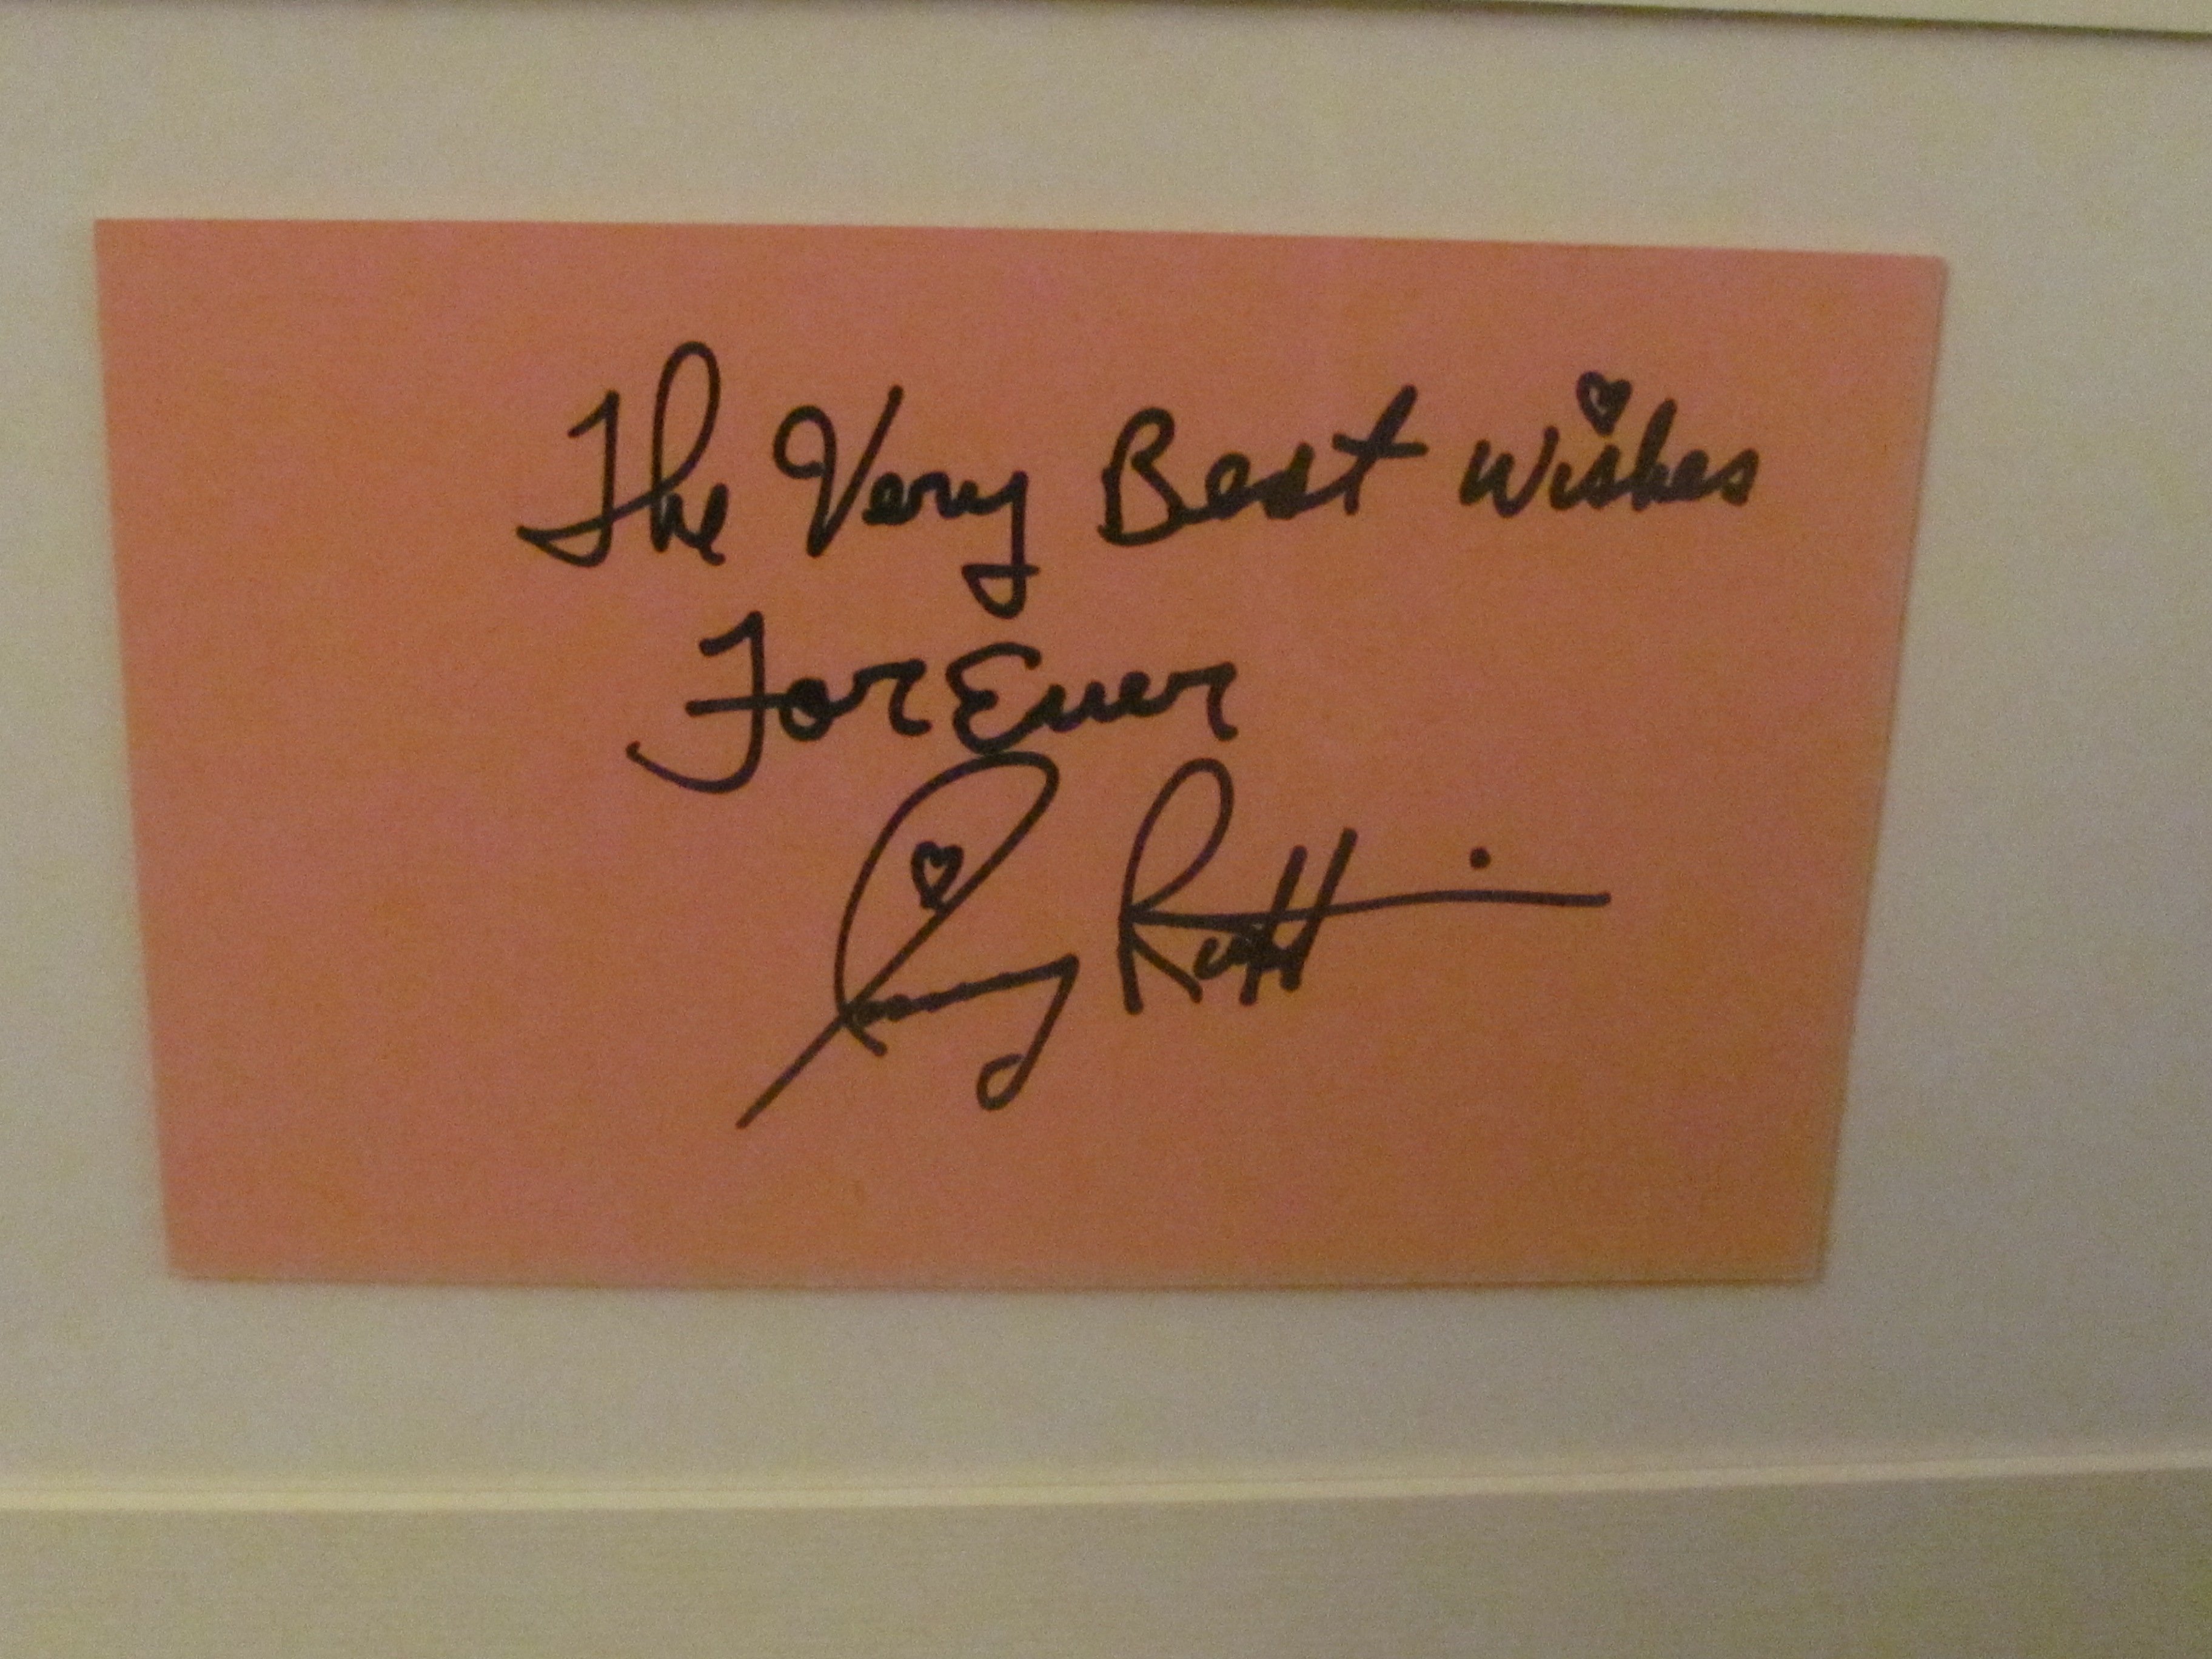 The Very Best Wishes
ForEver